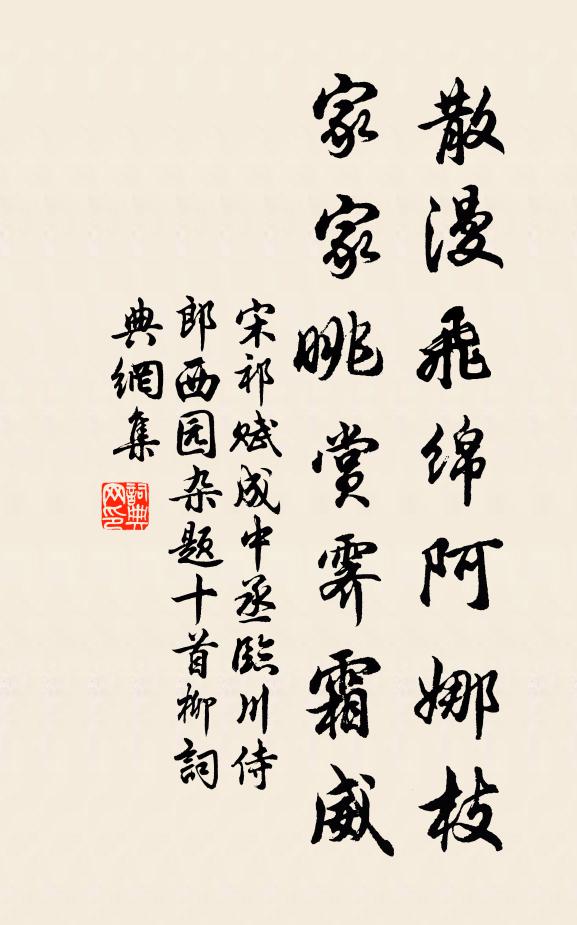 散漫飛绵阿娜枝
家家眺赏霁霜威
宋祁赋成中丞臨川侍
郎西园杂题十首柳詞
典網集
詞典
网印